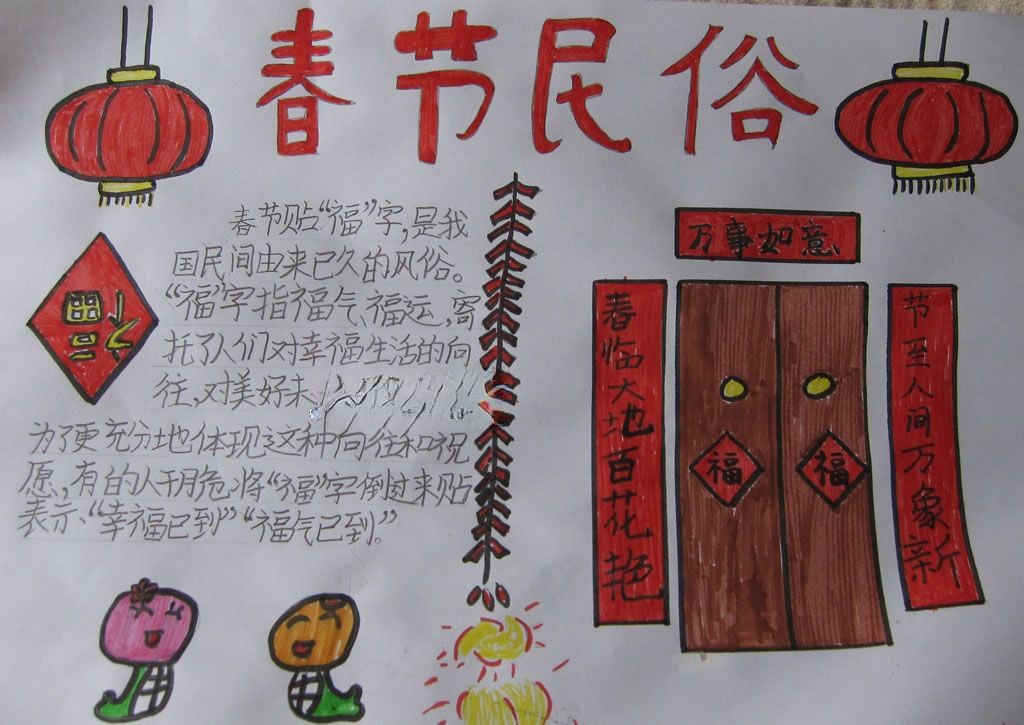 春节民俗
春节贴“福”字,是我
国民间由来已久的风俗。
“福”字指福气、福运,寄
托了人们对幸福生活的向
往,对美好未
为了更充分地体现这种向往和祝
愿,有的人干脆将“福”字倒过来贴
表示“幸福已到”“福气已到”。
福
万事如意
春临大地百花艳
节至人间万象新
福
福